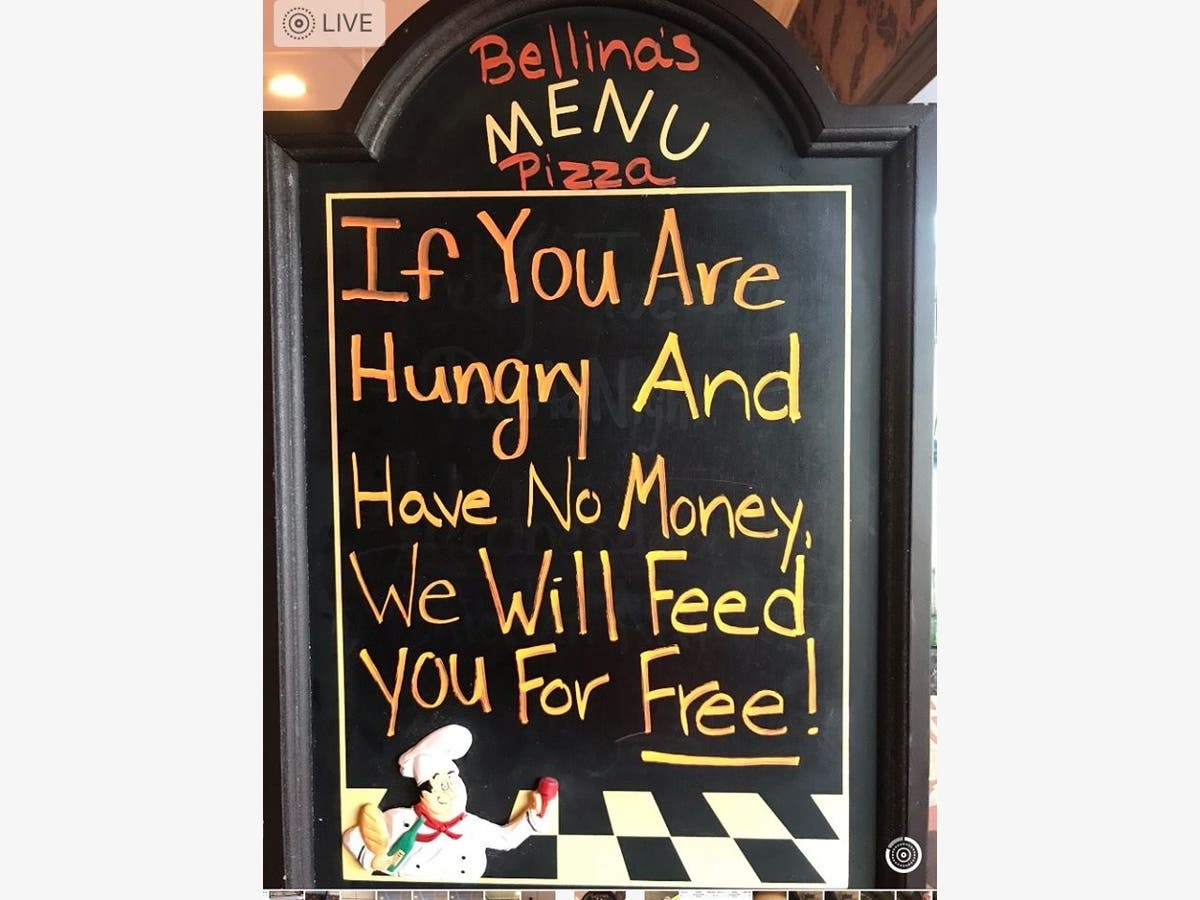 LIVE
Bellina's
MENU
Pizza
If You Are
Hungry And
Have No Money,
We Will Feed
you For Free!